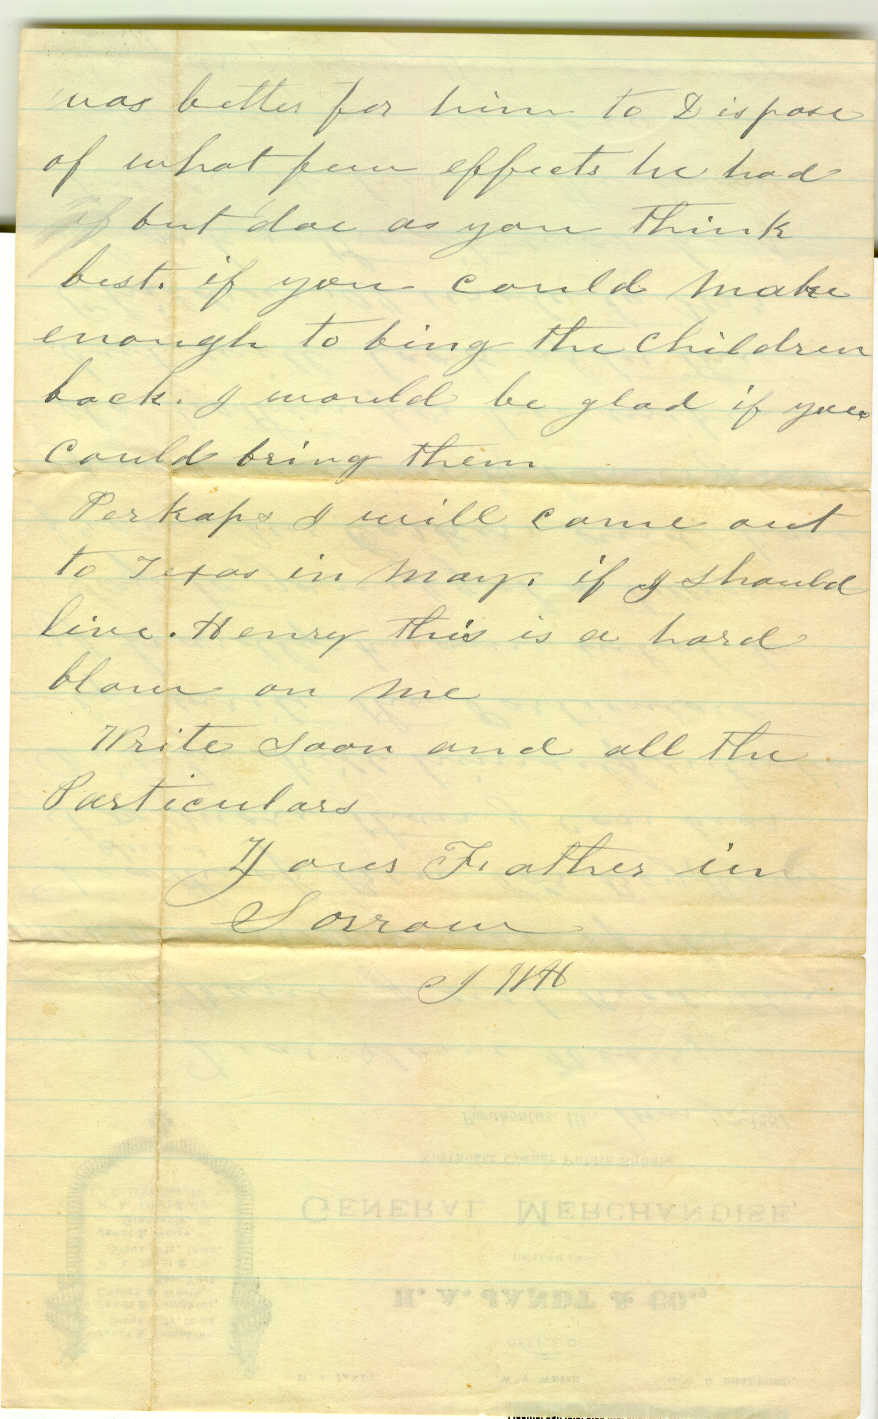 was better for him to Dispose
of what few effects he had
of but doe as you think
best. if you could make
enough to bing the children
back. I would be glad if you
could bring them
Perhaps I will come out
to Texas in May. if I should
live. Henry this is a hard
blow on me
Write soon and all the
Particulars
Yours Father in
Sorrow
J W H
Pocahontas, Ill.
General Merchandise,
H. A. JANDT & CO.,